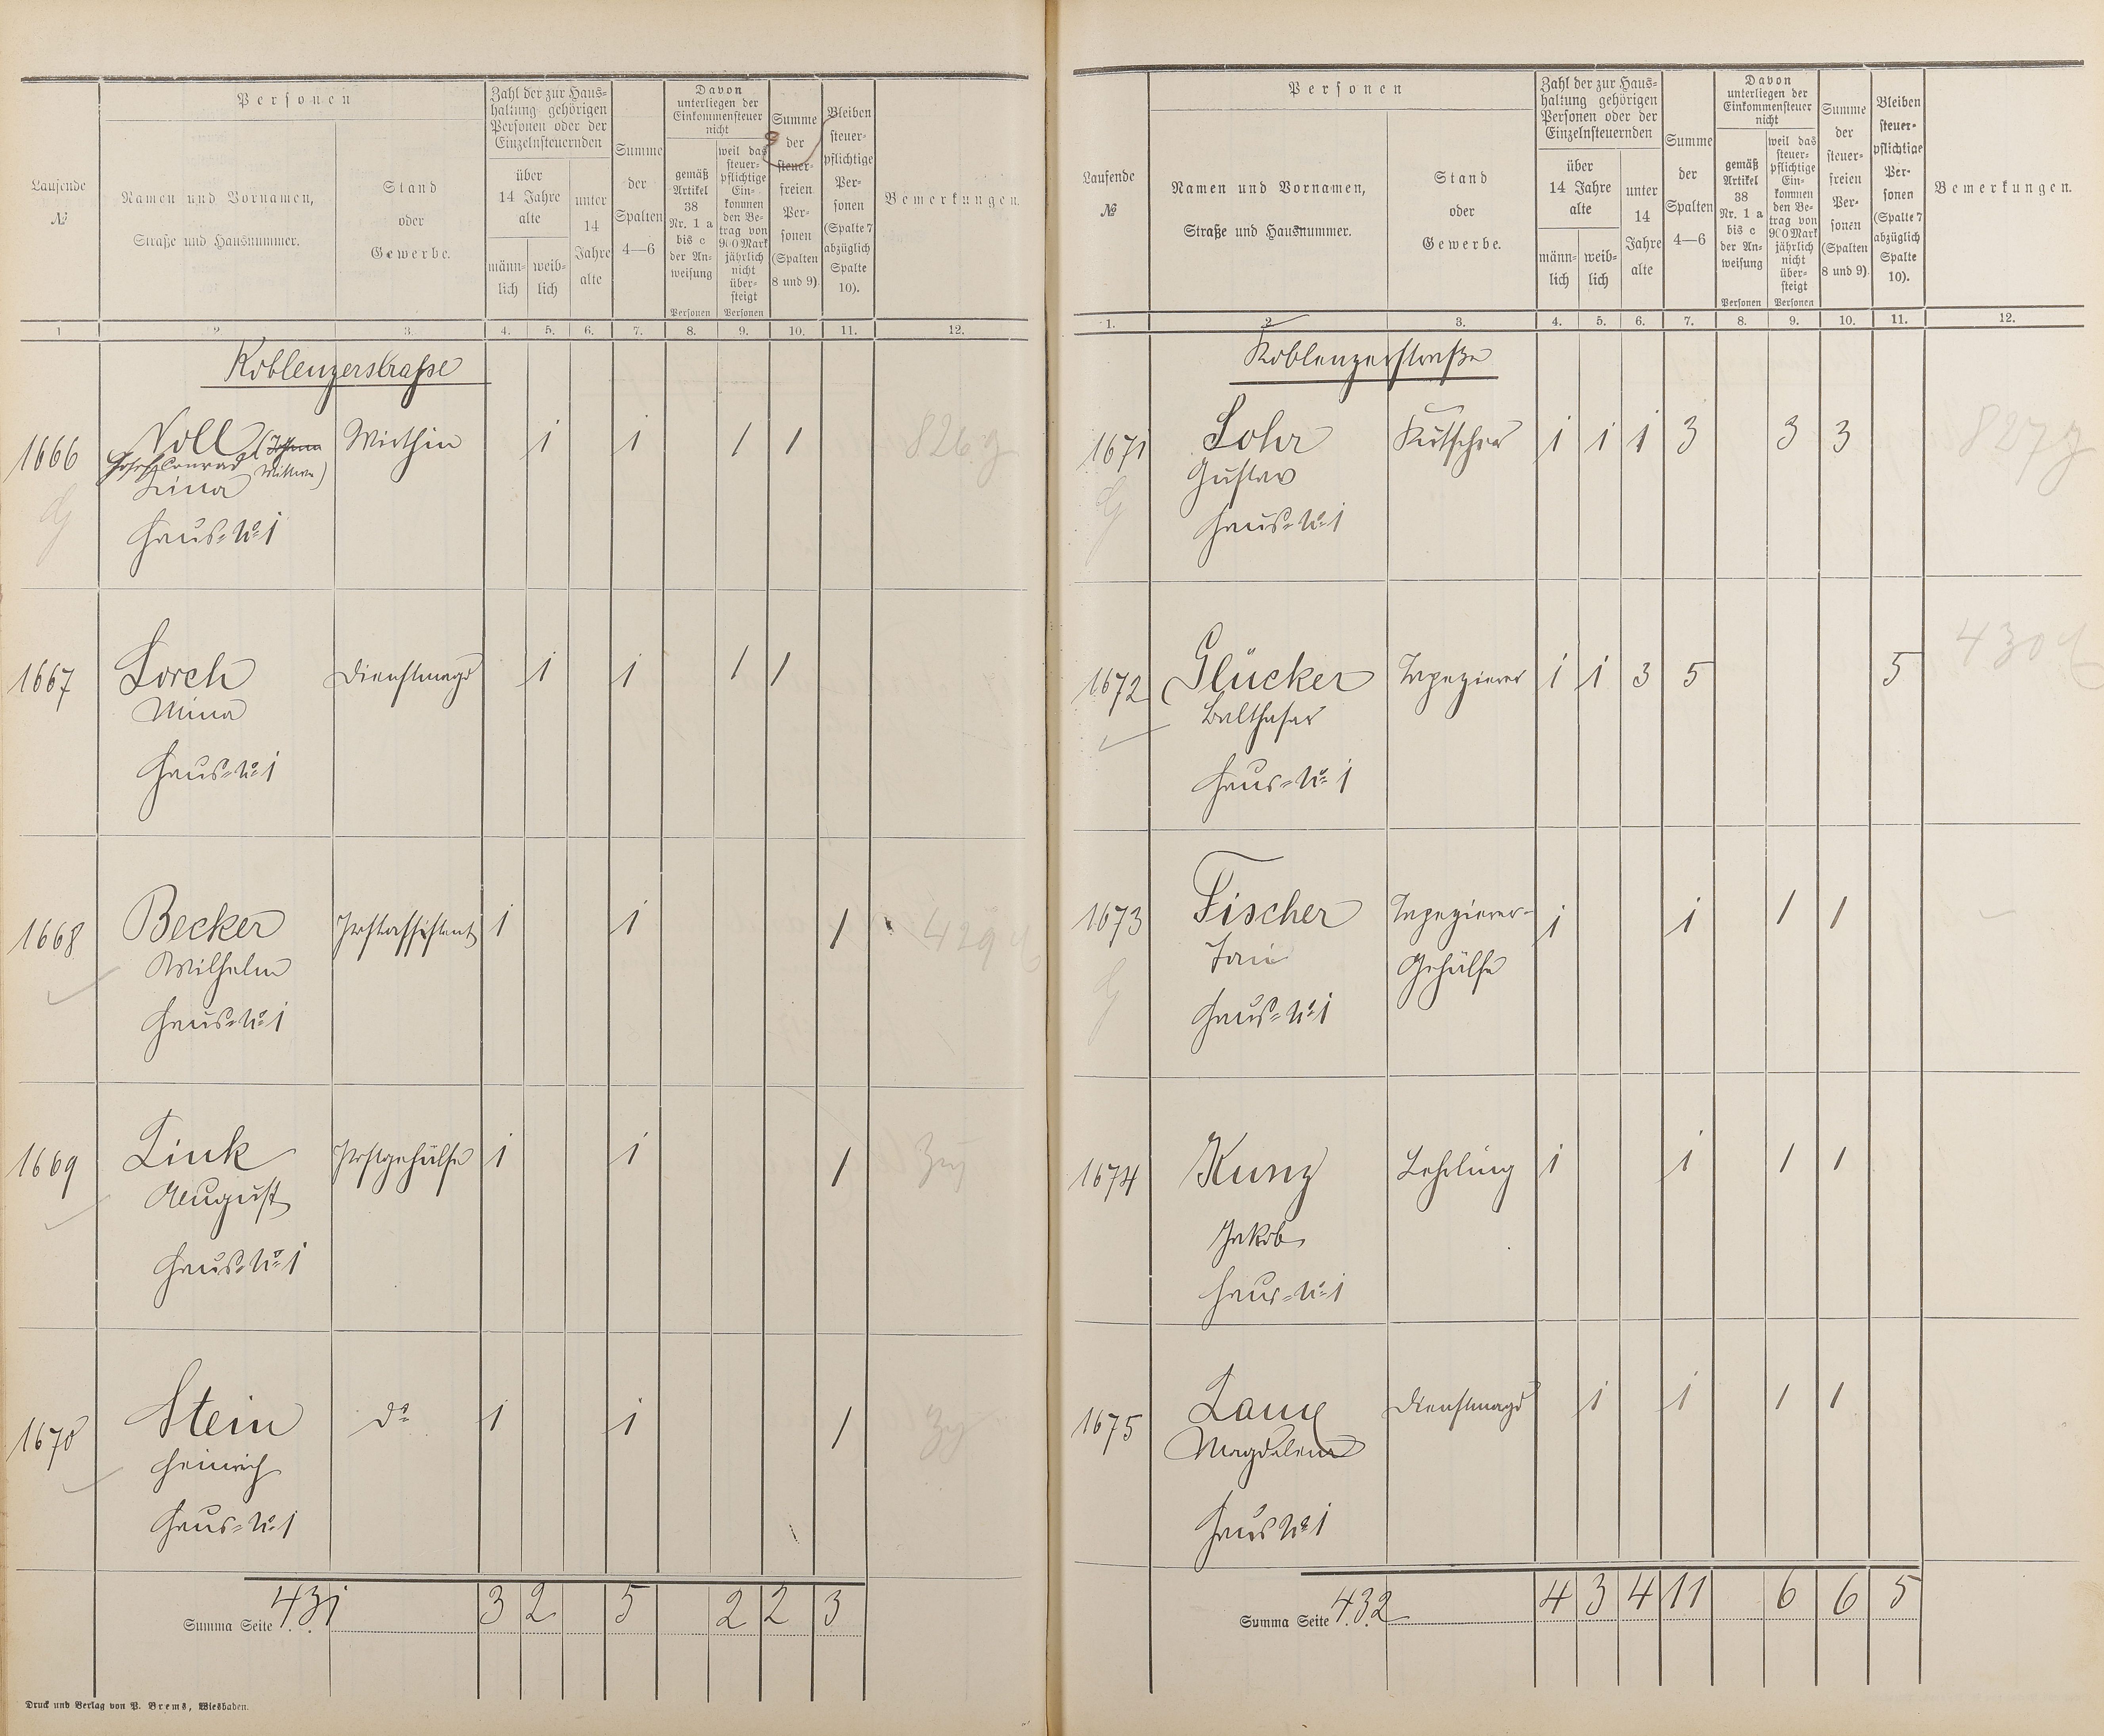 Personen
Zahl der zur Haus-
haltung gehörigen
Personen oder der
Einzelnsteuernden
Davon
unterliegen der
Einkommensteuer
nicht
Laufende
№
Namen und Vornamen,
Straße und Hausnummer.
Stand
oder
Gewerbe.
über
14 Jahre
alte
männ-
lich
weib-
lich
unter
14
Jahre
alte
Summe
der
Spalten
4—6
gemäß
Artikel
38
Nr. 1 a
bis c
der An-
weisung
Personen
weil das
steuer-
pflichtige
Ein-
kommen
den Be-
trag von
900 Mark
jährlich
nicht
über-
steigt
Personen
Summe
der
steuer-
freien
Per-
sonen
(Spalten
8 und 9).
Bleiben
steuer-
pflichtige
Per-
sonen
(Spalte 7
abzüglich
Spalte
10).
Bemerkungen.
1 2 3. 4. 5. 6. 7. 8. 9. 10. 11. 12.
Koblenzerstraße
1666 Noll (Johann Wirthin 1 1 1 1 826 g
Josef Conrad Wittwe)
Lina
Haus-No 1
1667 Lorch Dienstmagd 1 1 1 1
Mina
Haus-No 1
1668 Becker Postassistent 1 1 1 429
Wilhelm
Haus-No 1
1669 Link Postgehülfe 1 1 1
August
Haus-No 1
1670 Stein do 1 1 1
Heinrich
Haus-No 1
Summa Seite 431 3 2 5 2 2 3
Druck und Verlag von P. Brems, Wiesbaden.
Personen
Zahl der zur Haus-
haltung gehörigen
Personen oder der
Einzelnsteuernden
Davon
unterliegen der
Einkommensteuer
nicht
Laufende
№
Namen und Vornamen,
Straße und Hausnummer.
Stand
oder
Gewerbe.
über
14 Jahre
alte
männ-
lich
weib-
lich
unter
14
Jahre
alte
Summe
der
Spalten
4—6
gemäß
Artikel
38
Nr. 1 a
bis c
der An-
weisung
Personen
weil das
steuer-
pflichtige
Ein-
kommen
den Be-
trag von
900 Mark
jährlich
nicht
über-
steigt
Personen
Summe
der
steuer-
freien
Per-
sonen
(Spalten
8 und 9).
Bleiben
steuer-
pflichtige
Per-
sonen
(Spalte 7
abzüglich
Spalte
10).
Bemerkungen.
1. 2 3. 4. 5. 6. 7. 8. 9. 10. 11. 12.
Koblenzerstraße
1671 Lohr Kutscher 1 1 1 3 3 3 827 g
Gustav
Haus-No 1
1672 Glücker Tapezierer 1 1 3 5 5 430
Balthasar
Haus-No 1
1673 Fischer Tapezierer- 1 1 1 1
Gehülfe
Haus-No 1
1674 Kunz Lehrling 1 1 1 1
Jakob
Haus-No 1
1675 Dienstmagd 1 1 1 1
Magdalena
Haus No 1
Summa Seite 432 4 3 4 11 6 6 5